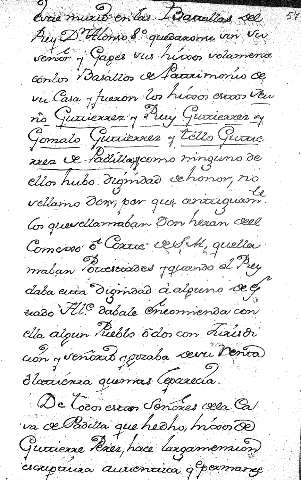 este murio en las Batallas del
Rey Dn. Alonso 8º quedaronse sin su
señor y Gages sus hixos solamente
con los Basallos de Patrimonio de
su Casa y fueron los hixos estos Nu
ño Gutierrez y Ruy Gutierrez y
Gonzalo Gutierrez y Tello Gutie
rrez de Padilla y como ninguno de
ellos hubo dignidad de honor, no se
llamo Don, por que antiguam.te
los que se llamaban Don heran de el
Consexo ó Corte de S. M., que lla
maban Potestades y quando el Rey
daba esta dignidad á alguno de es
tado dabale Encomienda con
ella algun Pueblo ó dos con Jurisdi
cion y señorio y gozaba de su Renta
ó la tierra que mas le parecia.
De todos estos Señores de la Ca
sa de Padilla que he dho, hixos de
Gutierre Perez, hace larga mencion
escriptura autentica q.e permane